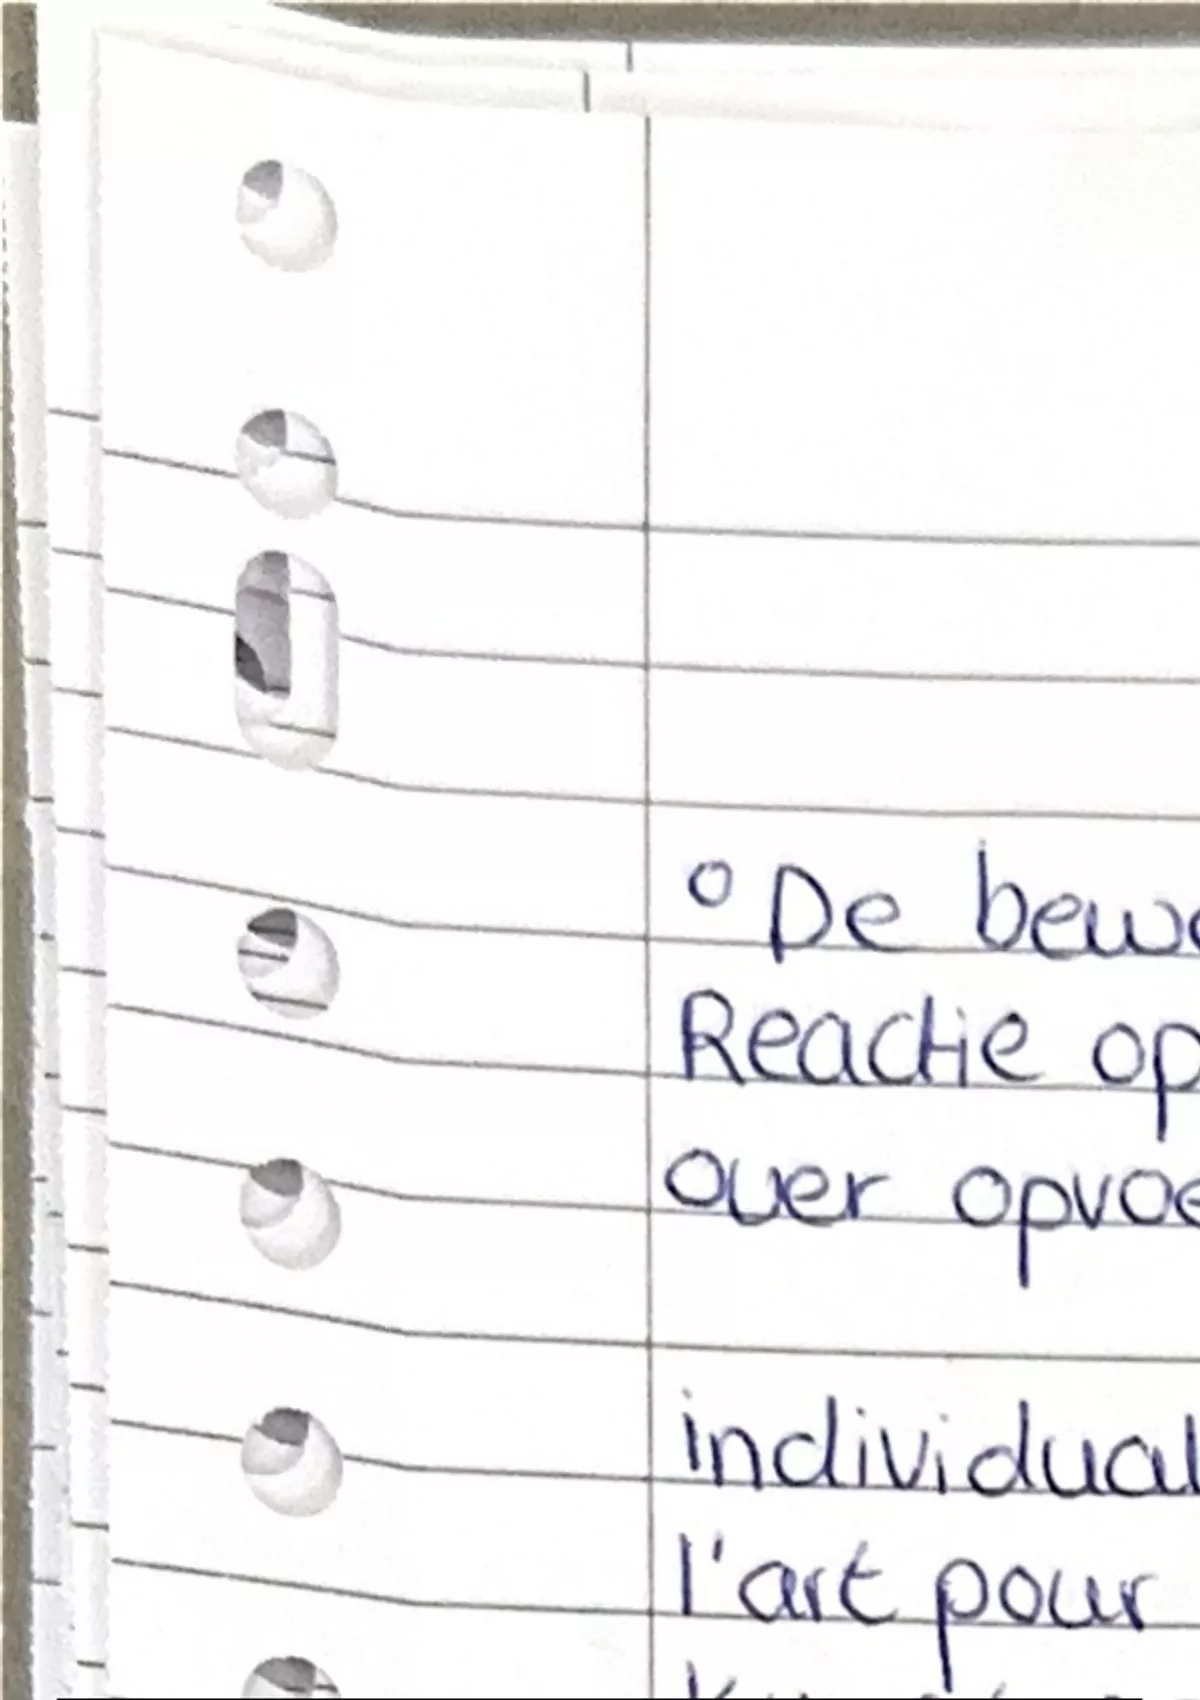 ° De bewe
Reactie op
over opvoe
individual
l'art pour